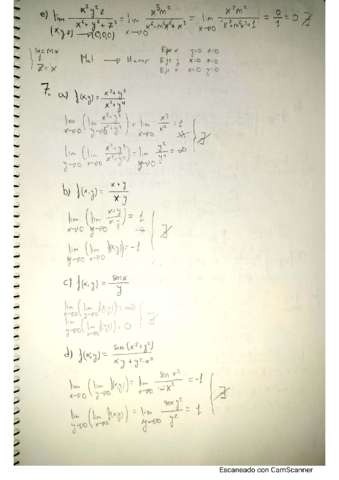 e) lim (x,y,z)→(0,0,0) x³y²z / x²+y⁴+z² = lim x→0 = lim x→0 = 0/1 = 0
{ y=mx
z=x
Mal → Hacer Eje x y=0 z=0
Eje y x=0 z=0
Eje z x=0 y=0
7. a) f(x,y) = x²+y² / x²+y⁴
lim x→0 (lim y→0 x²+y² / x²+y⁴) = lim x→0 x²/x² = 1
lim y→0 (lim x→0 x²+y² / x²+y⁴) = lim y→0 y²/y⁴ = ∞
b) f(x,y) =
lim x→0 (lim y→0) = 1
lim y→0 (lim x→0 f(x,y)) = -1
c) f(x,y) = senx / y
lim x→0 (lim y→0 f(x,y)) = ∞
lim y→0 (lim x→0 f(x,y)) = 0
d) f(x,y) = sen(x²+y²) / xy+y²-x²
lim x→0 (lim y→0 f(x,y)) = lim x→0 sen x² / -x² = -1
lim y→0 (lim x→0 f(x,y)) = lim y→0 sen y² / y² = 1
Escaneado con CamScanner